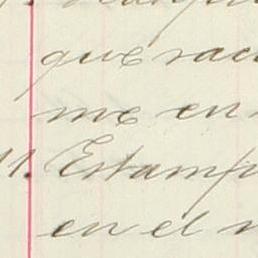 que sac
me en
11. Estamp
en el n